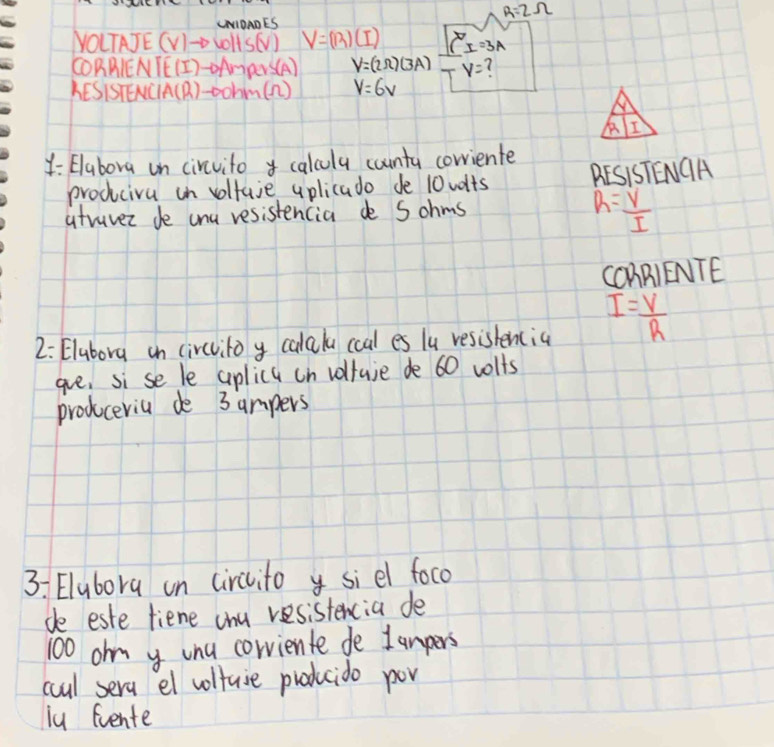 UNIDADES
VOLTAJE (V) → volts(V) V=(R)(I)
CORRIENTE(I)→Ampers(A) V=(2Ω)(3A)
RESISTENCIA(R)→ohm(Ω) V=6v
R=2Ω
I=3A
V=?
V
R I
1=Elabora un circuito y calcula cuanta corriente
producira un voltaje aplicado de 10 volts
atravez de una resistencia de 5 ohms
RESISTENCIA
R=V/I
CORRIENTE
I=V/R
2=Elabora un circuito y calcula cual es la resistencia
que, si se le aplica un voltaje de 60 volts
produceria de 3 ampers
3=Elabora un circuito y si el foco
de este tiene una resistencia de
100 ohm y una corriente de 1 ampers
cual sera el voltaje producido por
la fuente